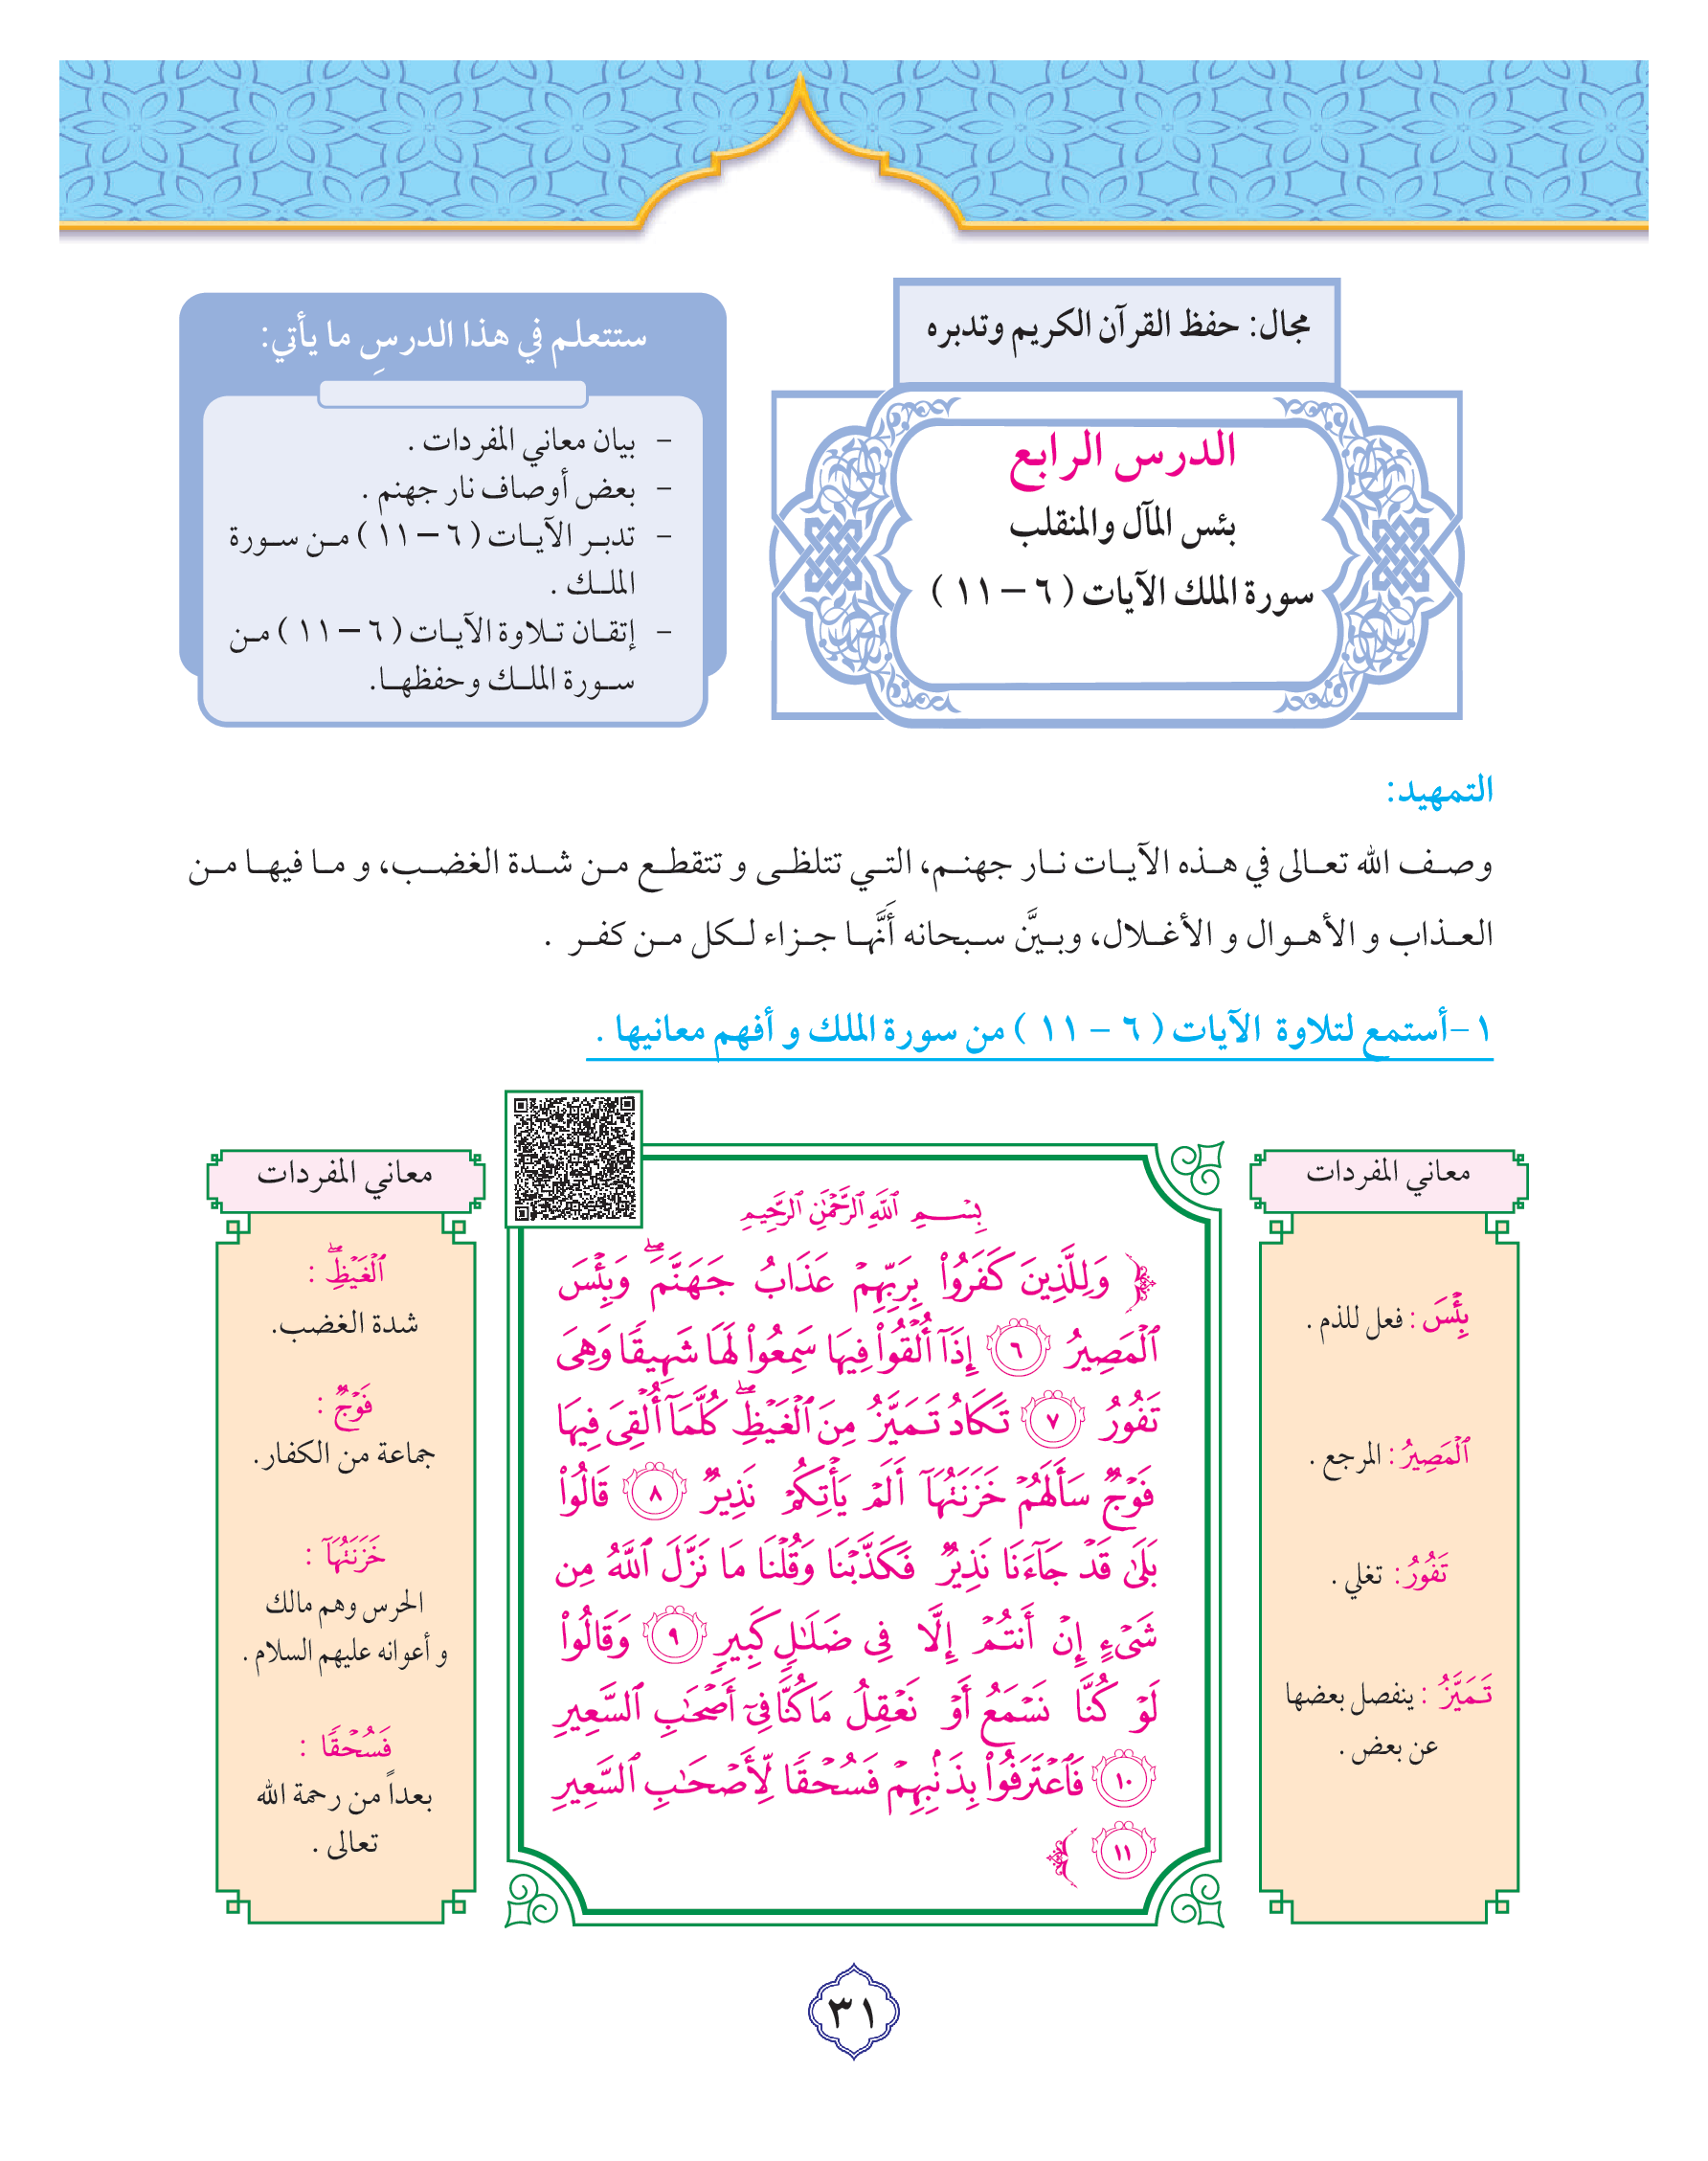 مجال: حفظ القرآن الكريم وتدبره
الدرس الرابع
بئس المآل والمنقلب
سورة الملك الآيات ( ٦ – ١١ )
ستتعلم في هذا الدرسِ ما يأتي:
- بيان معاني المفردات .
- بعض أوصاف نار جهنم .
- تدبر الآيات ( ٦ – ١١ ) من سورة
الملك .
- إتقان تلاوة الآيات ( ٦ – ١١ ) من
سورة الملك وحفظها.
التمهيد:
وصف الله تعالى في هذه الآيات نار جهنم، التي تتلظى و تتقطع من شدة الغضب، و ما فيها من
العذاب و الأهوال و الأغلال، وبيَّن سبحانه أَنَّها جزاء لكل من كفر .
١-أستمع لتلاوة الآيات ( ٦ – ١١ ) من سورة الملك و أفهم معانيها .
معاني المفردات
بِئْسَ : فعل للذم .
ٱلْمَصِيرُ : المرجع .
تَفُورُ : تغلي .
تَمَيَّزُ : ينفصل بعضها
عن بعض .
بِسْمِ ٱللَّهِ ٱلرَّحْمَٰنِ ٱلرَّحِيمِ
﴿ وَلِلَّذِينَ كَفَرُواْ بِرَبِّهِمْ عَذَابُ جَهَنَّمَۖ وَبِئْسَ
ٱلْمَصِيرُ ٦ إِذَآ أُلْقُواْ فِيهَا سَمِعُواْ لَهَا شَهِيقًا وَهِىَ
تَفُورُ ٧ تَكَادُ تَمَيَّزُ مِنَ ٱلْغَيْظِۖ كُلَّمَآ أُلْقِىَ فِيهَا
فَوْجٌ سَأَلَهُمْ خَزَنَتُهَآ أَلَمْ يَأْتِكُمْ نَذِيرٌ ٨ قَالُواْ
بَلَىٰ قَدْ جَآءَنَا نَذِيرٌ فَكَذَّبْنَا وَقُلْنَا مَا نَزَّلَ ٱللَّهُ مِن
شَىْءٍ إِنْ أَنتُمْ إِلَّا فِى ضَلَٰلٍ كَبِيرٍ ٩ وَقَالُواْ
لَوْ كُنَّا نَسْمَعُ أَوْ نَعْقِلُ مَا كُنَّا فِىٓ أَصْحَٰبِ ٱلسَّعِيرِ
١٠ فَٱعْتَرَفُواْ بِذَنۢبِهِمْ فَسُحْقًا لِّأَصْحَٰبِ ٱلسَّعِيرِ
١١ ﴾
معاني المفردات
ٱلْغَيْظِۖ :
شدة الغضب.
فَوْجٌ :
جماعة من الكفار.
خَزَنَتُهَآ :
الحرس وهم مالك
و أعوانه عليهم السلام .
فَسُحْقًا :
بعداً من رحمة الله
تعالى .
٣١